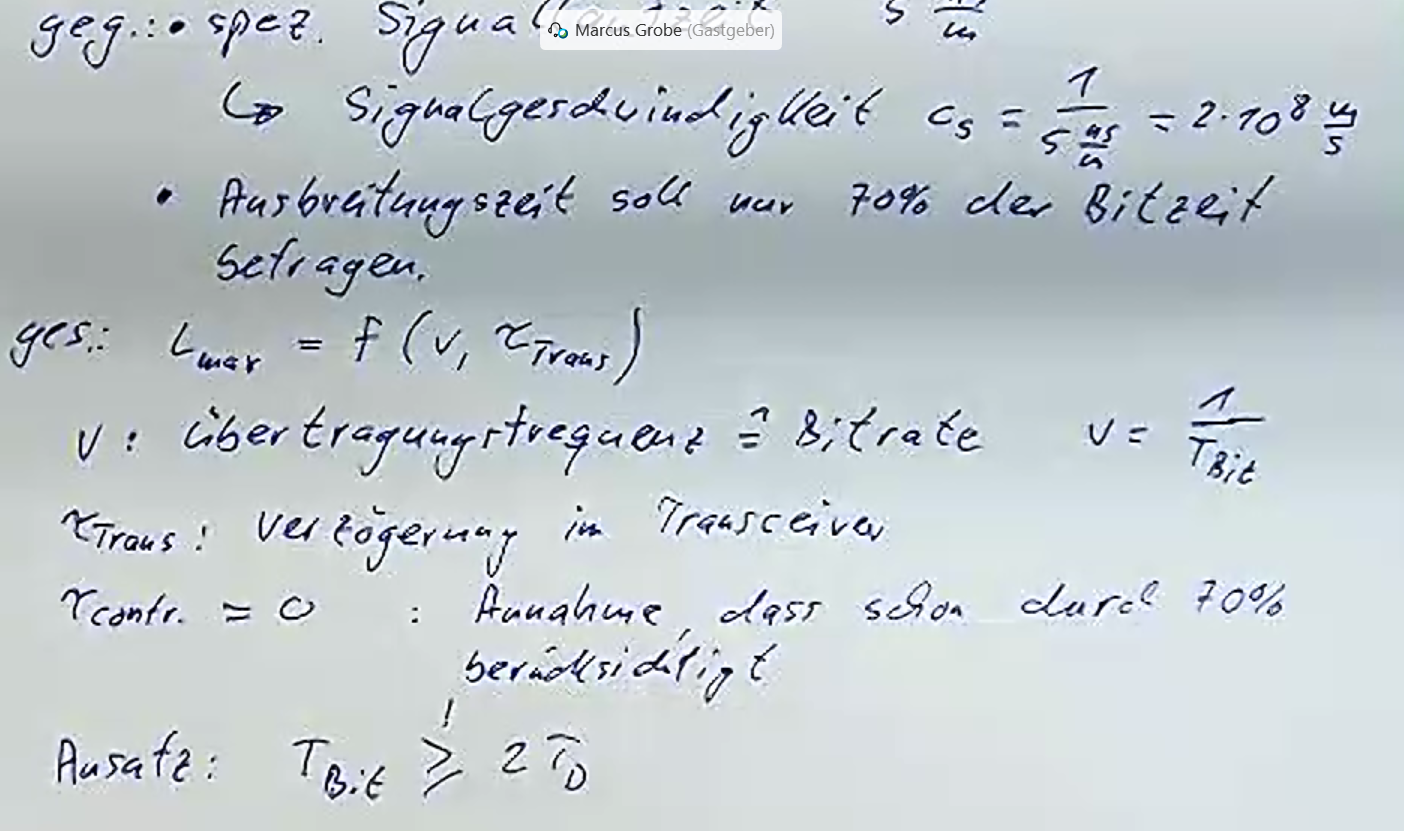 geg.: • spez. Signallaufzeit 5 ns/m
Marcus Grobe (Gastgeber)
↳ Signalgeschwindigkeit c_s = 1/(5 ns/m) = 2·10^8 m/s
• Ausbreitungszeit soll nur 70% der Bitzeit
betragen.
ges.: L_max = f(v, τ_Trans)
v: Übertragungsfrequenz ≙ Bitrate v = 1/T_Bit
τ_Trans: Verzögerung im Transceiver
τ_contr. = 0 : Annahme, dass schon durch 70%
berücksichtigt
Ansatz: T_Bit ≥! 2 T_D